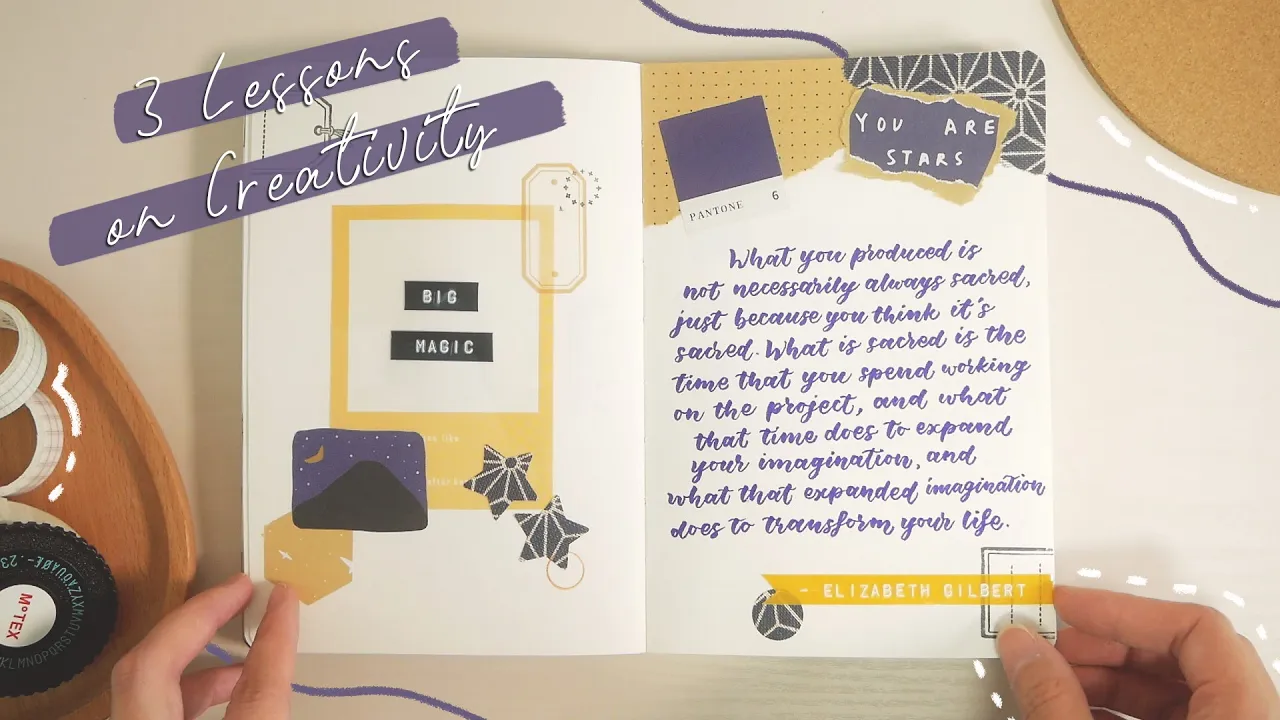 3 Lessons
on Creativity
BIG
MAGIC
YOU ARE
STARS
PANTONE 6
What you produced is
not necessarily always sacred,
just because you think it's
sacred. What is sacred is the
time that you spend working
on the project, and what
that time does to expand
your imagination, and
what that expanded imagination
does to transform your life.
- ELIZABETH GILBERT
MoTEX